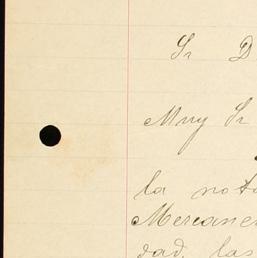 Sr D
Muy Sr
la nota
Mercane
dad, las